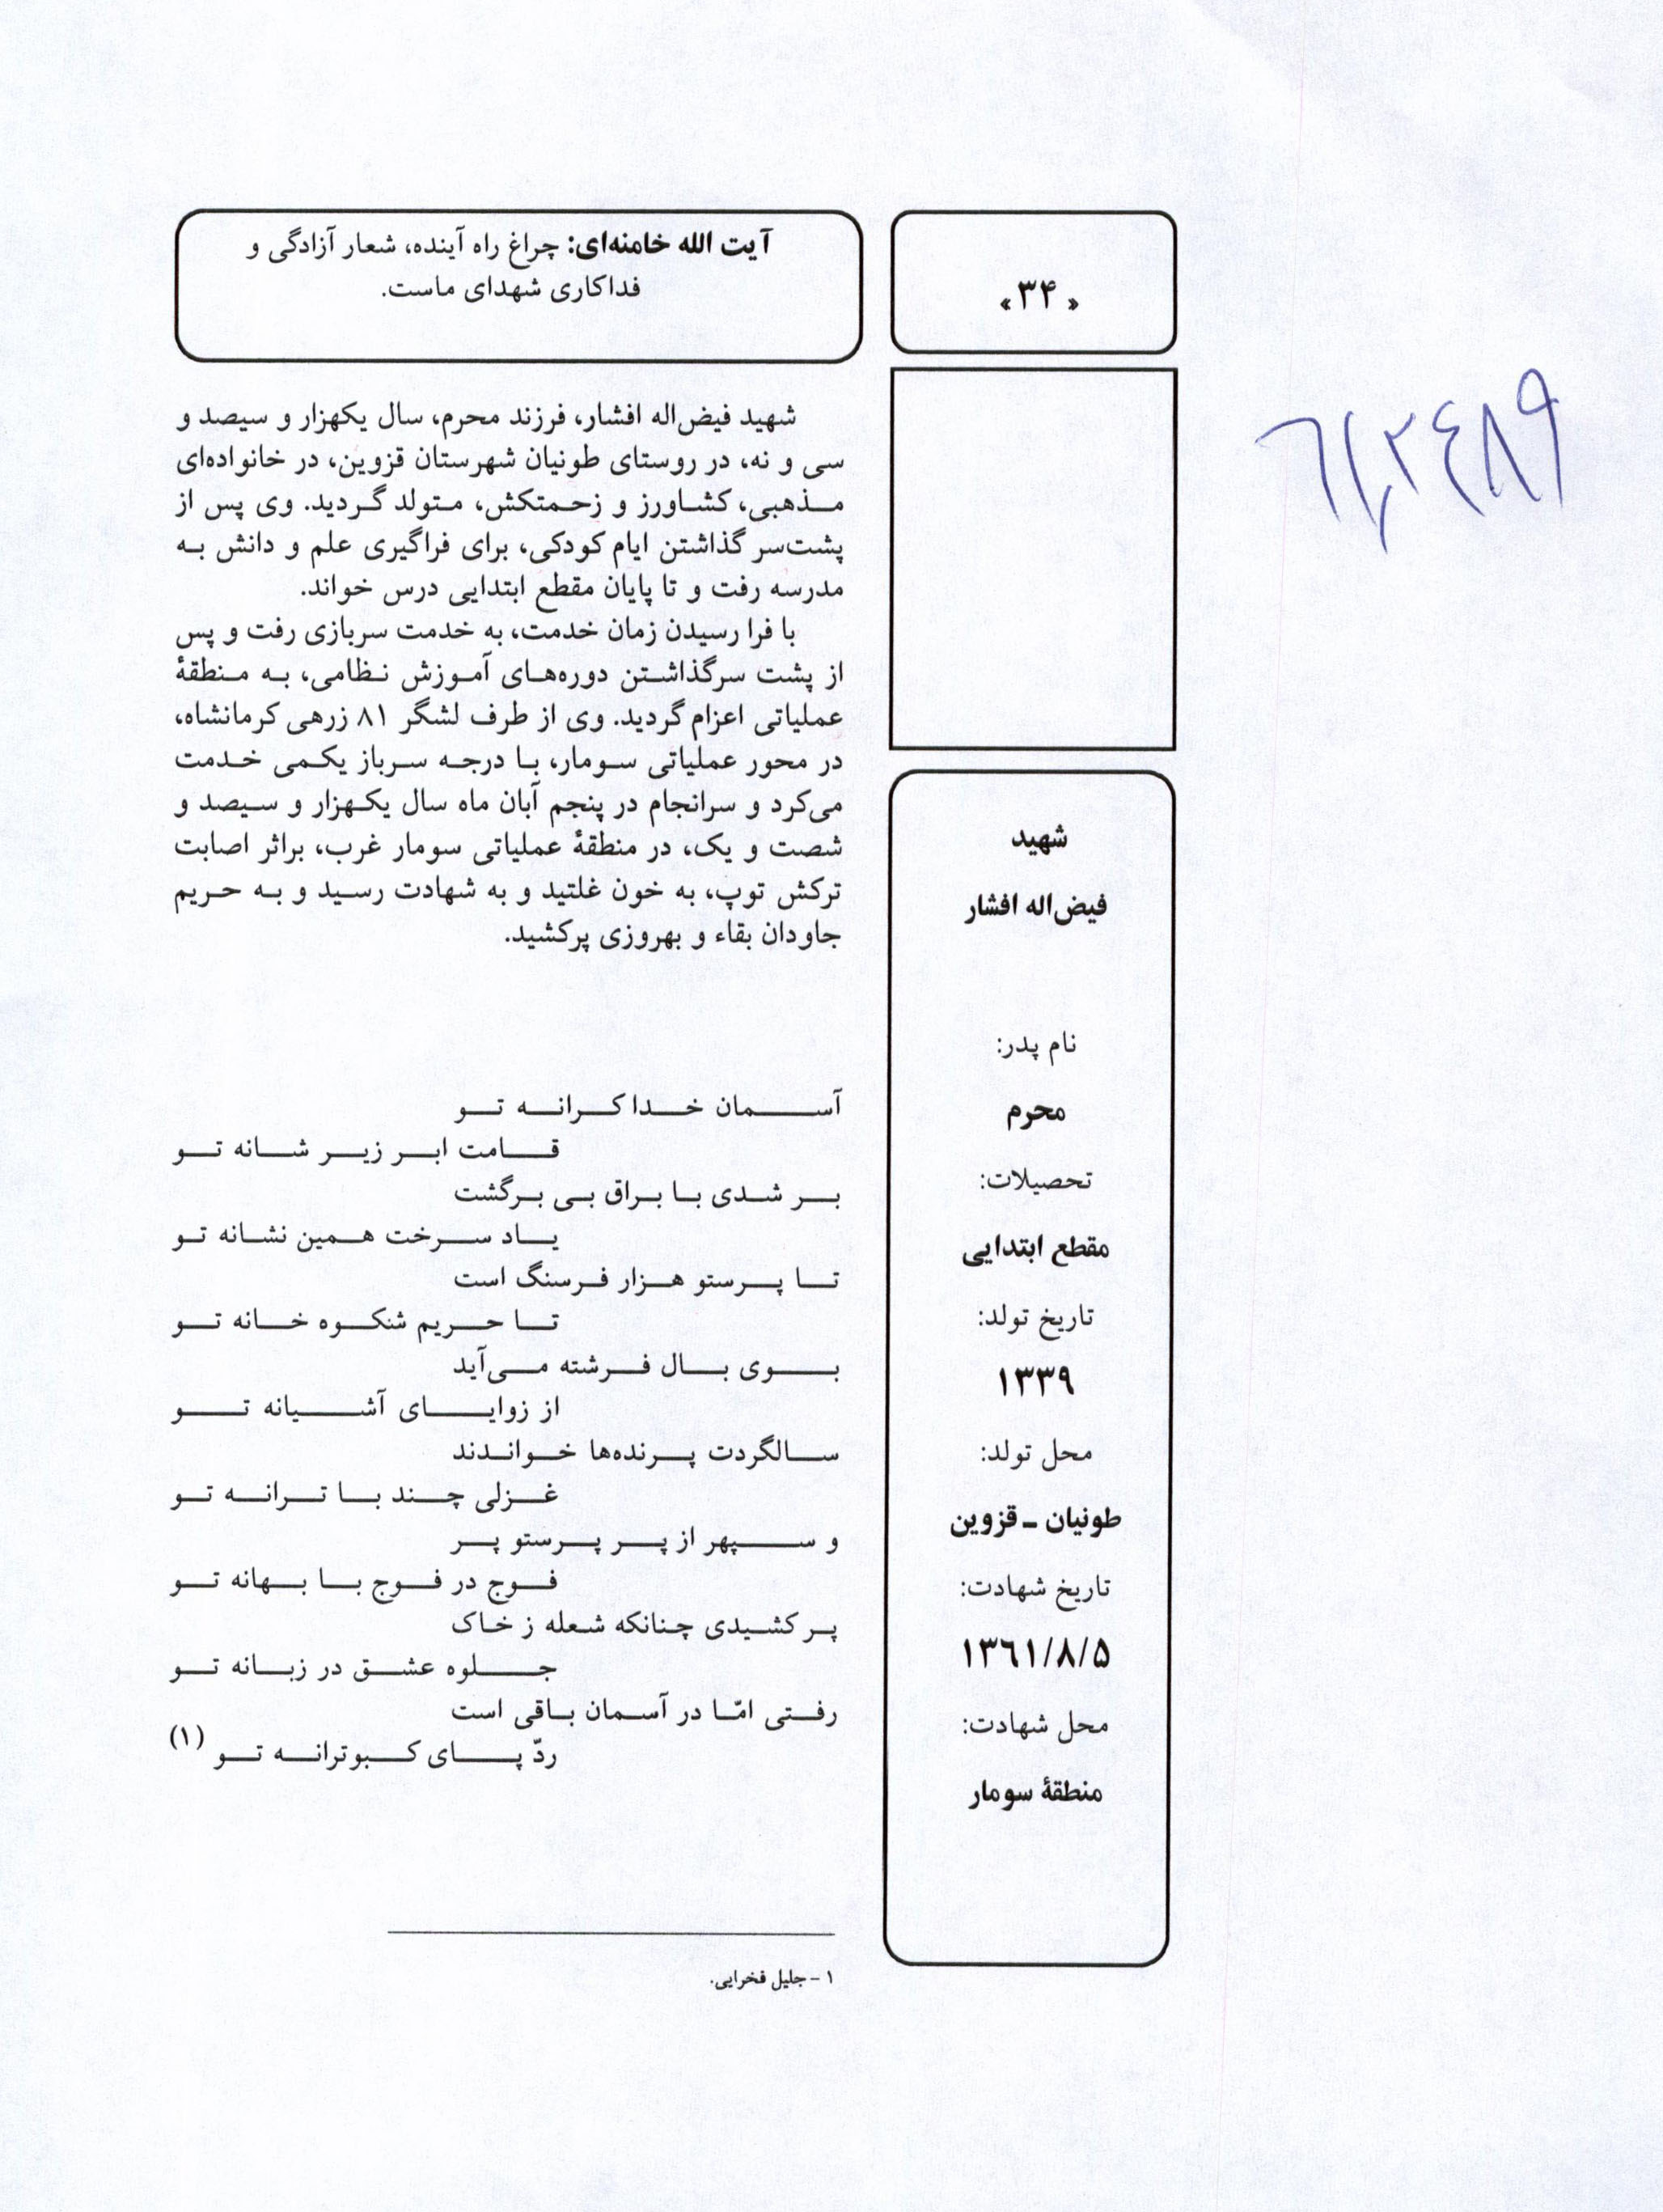 «۳۴»
آیت الله خامنه‌ای: چراغ راه آینده، شعار آزادگی و
فداکاری شهدای ماست.
شهید فیض‌اله افشار، فرزند محرم، سال یکهزار و سیصد و
سی و نه، در روستای طونیان شهرستان قزوین، در خانواده‌ای
مذهبی، کشاورز و زحمتکش، متولد گردید. وی پس از
پشت‌سر گذاشتن ایام کودکی، برای فراگیری علم و دانش به
مدرسه رفت و تا پایان مقطع ابتدایی درس خواند.
با فرا رسیدن زمان خدمت، به خدمت سربازی رفت و پس
از پشت سرگذاشتن دوره‌های آموزش نظامی، به منطقهٔ
عملیاتی اعزام گردید. وی از طرف لشگر ۸۱ زرهی کرمانشاه،
در محور عملیاتی سومار، با درجه سرباز یکمی خدمت
می‌کرد و سرانجام در پنجم آبان ماه سال یکهزار و سیصد و
شصت و یک، در منطقهٔ عملیاتی سومار غرب، براثر اصابت
ترکش توپ، به خون غلتید و به شهادت رسید و به حریم
جاودان بقاء و بهروزی پرکشید.
آسمان خدا کرانه تو
قامت ابر زیر شانه تو
بر شدی با براق بی برگشت
یاد سرخت همین نشانه تو
تا پرستو هزار فرسنگ است
تا حریم شنکوه خانه تو
بوی بال فرشته می‌آید
از زوایای آشیانه تو
سالگردت پرنده‌ها خواندند
غزلی چند با ترانه تو
و سپهر از پر پرستو پر
فوج در فوج با بهانه تو
پر کشیدی چنانکه شعله ز خاک
جلوه عشق در زبانه تو
رفتی امّا در آسمان باقی است
ردّ پای کبوترانه تو (۱)
۱ - جلیل فخرایی.
شهید
فیض‌اله افشار
نام پدر:
محرم
تحصیلات:
مقطع ابتدایی
تاریخ تولد:
۱۳۳۹
محل تولد:
طونیان - قزوین
تاریخ شهادت:
۱۳٦۱/۸/۵
محل شهادت:
منطقهٔ سومار